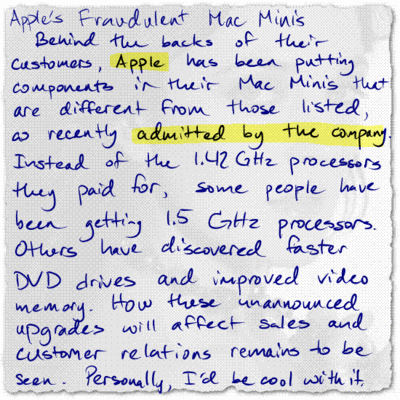 Apple's Fraudulent Mac Minis
Behind the backs of their
customers, Apple has been putting
components in their Mac Minis that
are different from those listed,
as recently admitted by the company.
Instead of the 1.42 GHz processors
they paid for, some people have
been getting 1.5 GHz processors.
Others have discovered faster
DVD drives and improved video
memory. How these unannounced
upgrades will affect sales and
customer relations remains to be
seen. Personally, I'd be cool with it.